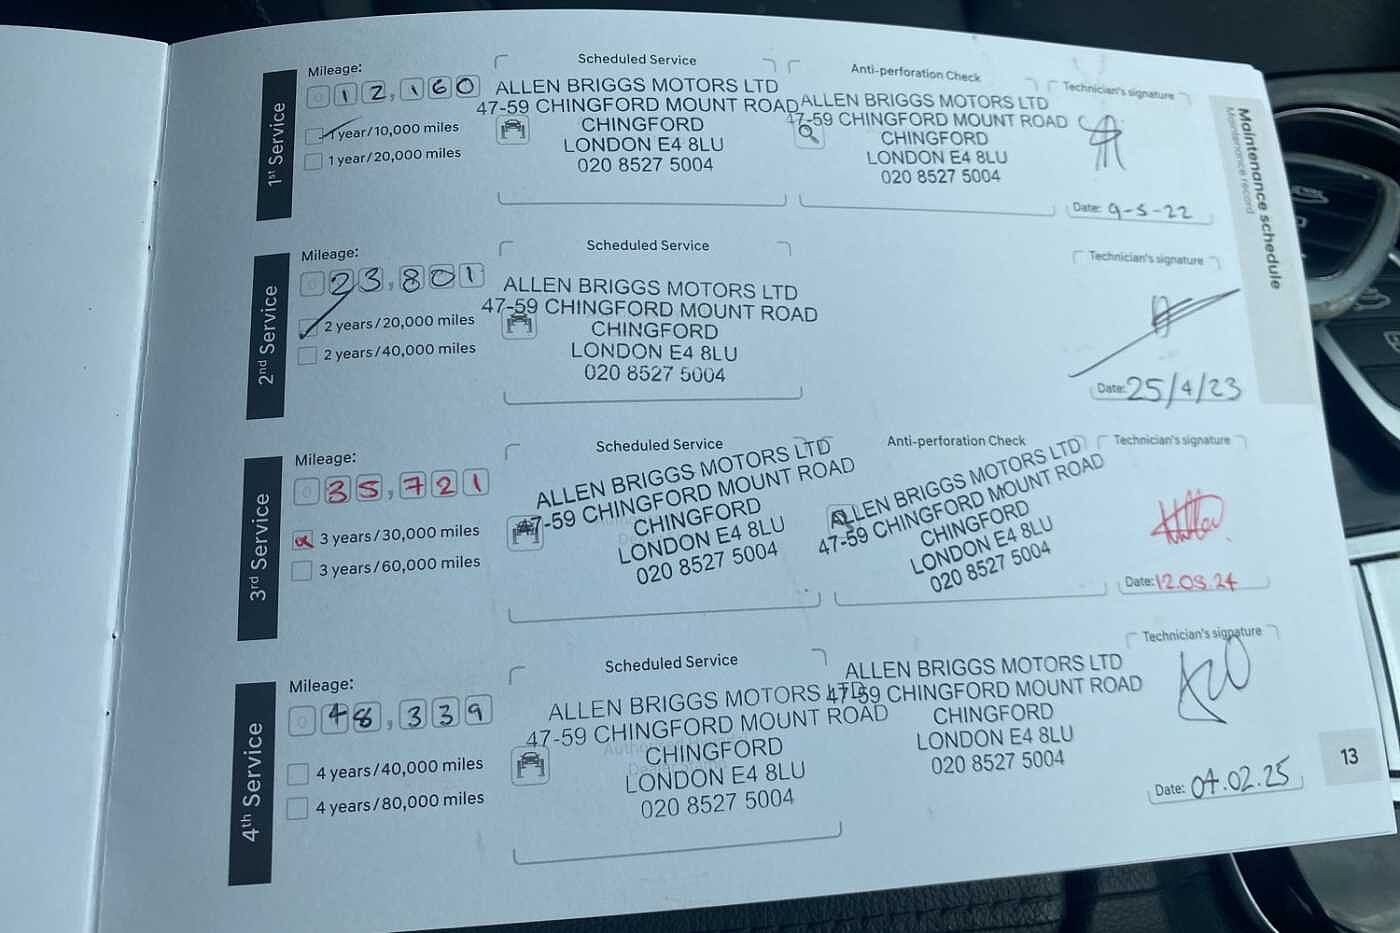 Maintenance schedule
Maintenance record
1st Service
Mileage:
012,160
1 year/10,000 miles
1 year/20,000 miles
Scheduled Service
ALLEN BRIGGS MOTORS LTD
47-59 CHINGFORD MOUNT ROAD
CHINGFORD
LONDON E4 8LU
020 8527 5004
Anti-perforation Check
ALLEN BRIGGS MOTORS LTD
47-59 CHINGFORD MOUNT ROAD
CHINGFORD
LONDON E4 8LU
020 8527 5004
Technician's signature
Date: 9-5-22
2nd Service
Mileage:
023,801
2 years/20,000 miles
2 years/40,000 miles
Scheduled Service
ALLEN BRIGGS MOTORS LTD
47-59 CHINGFORD MOUNT ROAD
CHINGFORD
LONDON E4 8LU
020 8527 5004
Technician's signature
Date: 25/4/23
3rd Service
Mileage:
035,721
3 years/30,000 miles
3 years/60,000 miles
Scheduled Service
ALLEN BRIGGS MOTORS LTD
47-59 CHINGFORD MOUNT ROAD
CHINGFORD
LONDON E4 8LU
020 8527 5004
Anti-perforation Check
ALLEN BRIGGS MOTORS LTD
47-59 CHINGFORD MOUNT ROAD
CHINGFORD
LONDON E4 8LU
020 8527 5004
Technician's signature
Date:
4th Service
Mileage:
048,339
4 years/40,000 miles
4 years/80,000 miles
Scheduled Service
ALLEN BRIGGS MOTORS LTD
47-59 CHINGFORD MOUNT ROAD
CHINGFORD
LONDON E4 8LU
020 8527 5004
ALLEN BRIGGS MOTORS LTD
47-59 CHINGFORD MOUNT ROAD
CHINGFORD
LONDON E4 8LU
020 8527 5004
Technician's signature
Date: 04.02.25
13